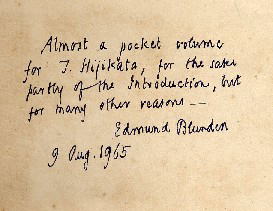 Almost a pocket volume
for T. Hijikata, for the sake
partly of the Introduction, but
for many other reasons --
Edmund Blunden
9 Aug. 1965